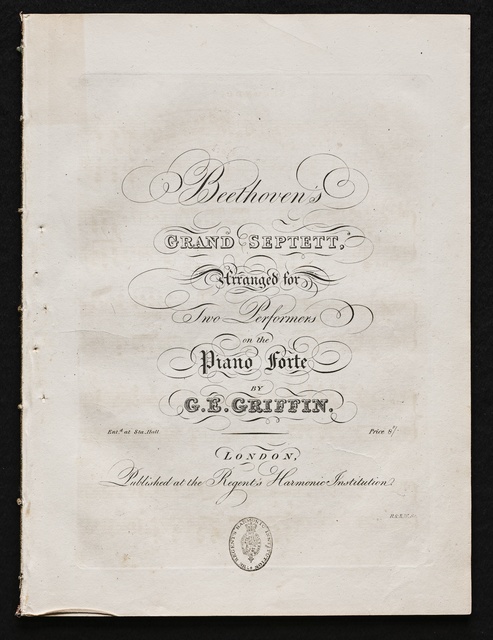 Beethoven's
GRAND SEPTETT,
Arranged for
Two Performers
on the
Piano Forte
BY
G.E. GRIFFIN.
Ent.d at Sta. Hall
Price 6/.
LONDON,
Published at the Regent's Harmonic Institution.
REGENT'S HARMONIC INSTITUTION